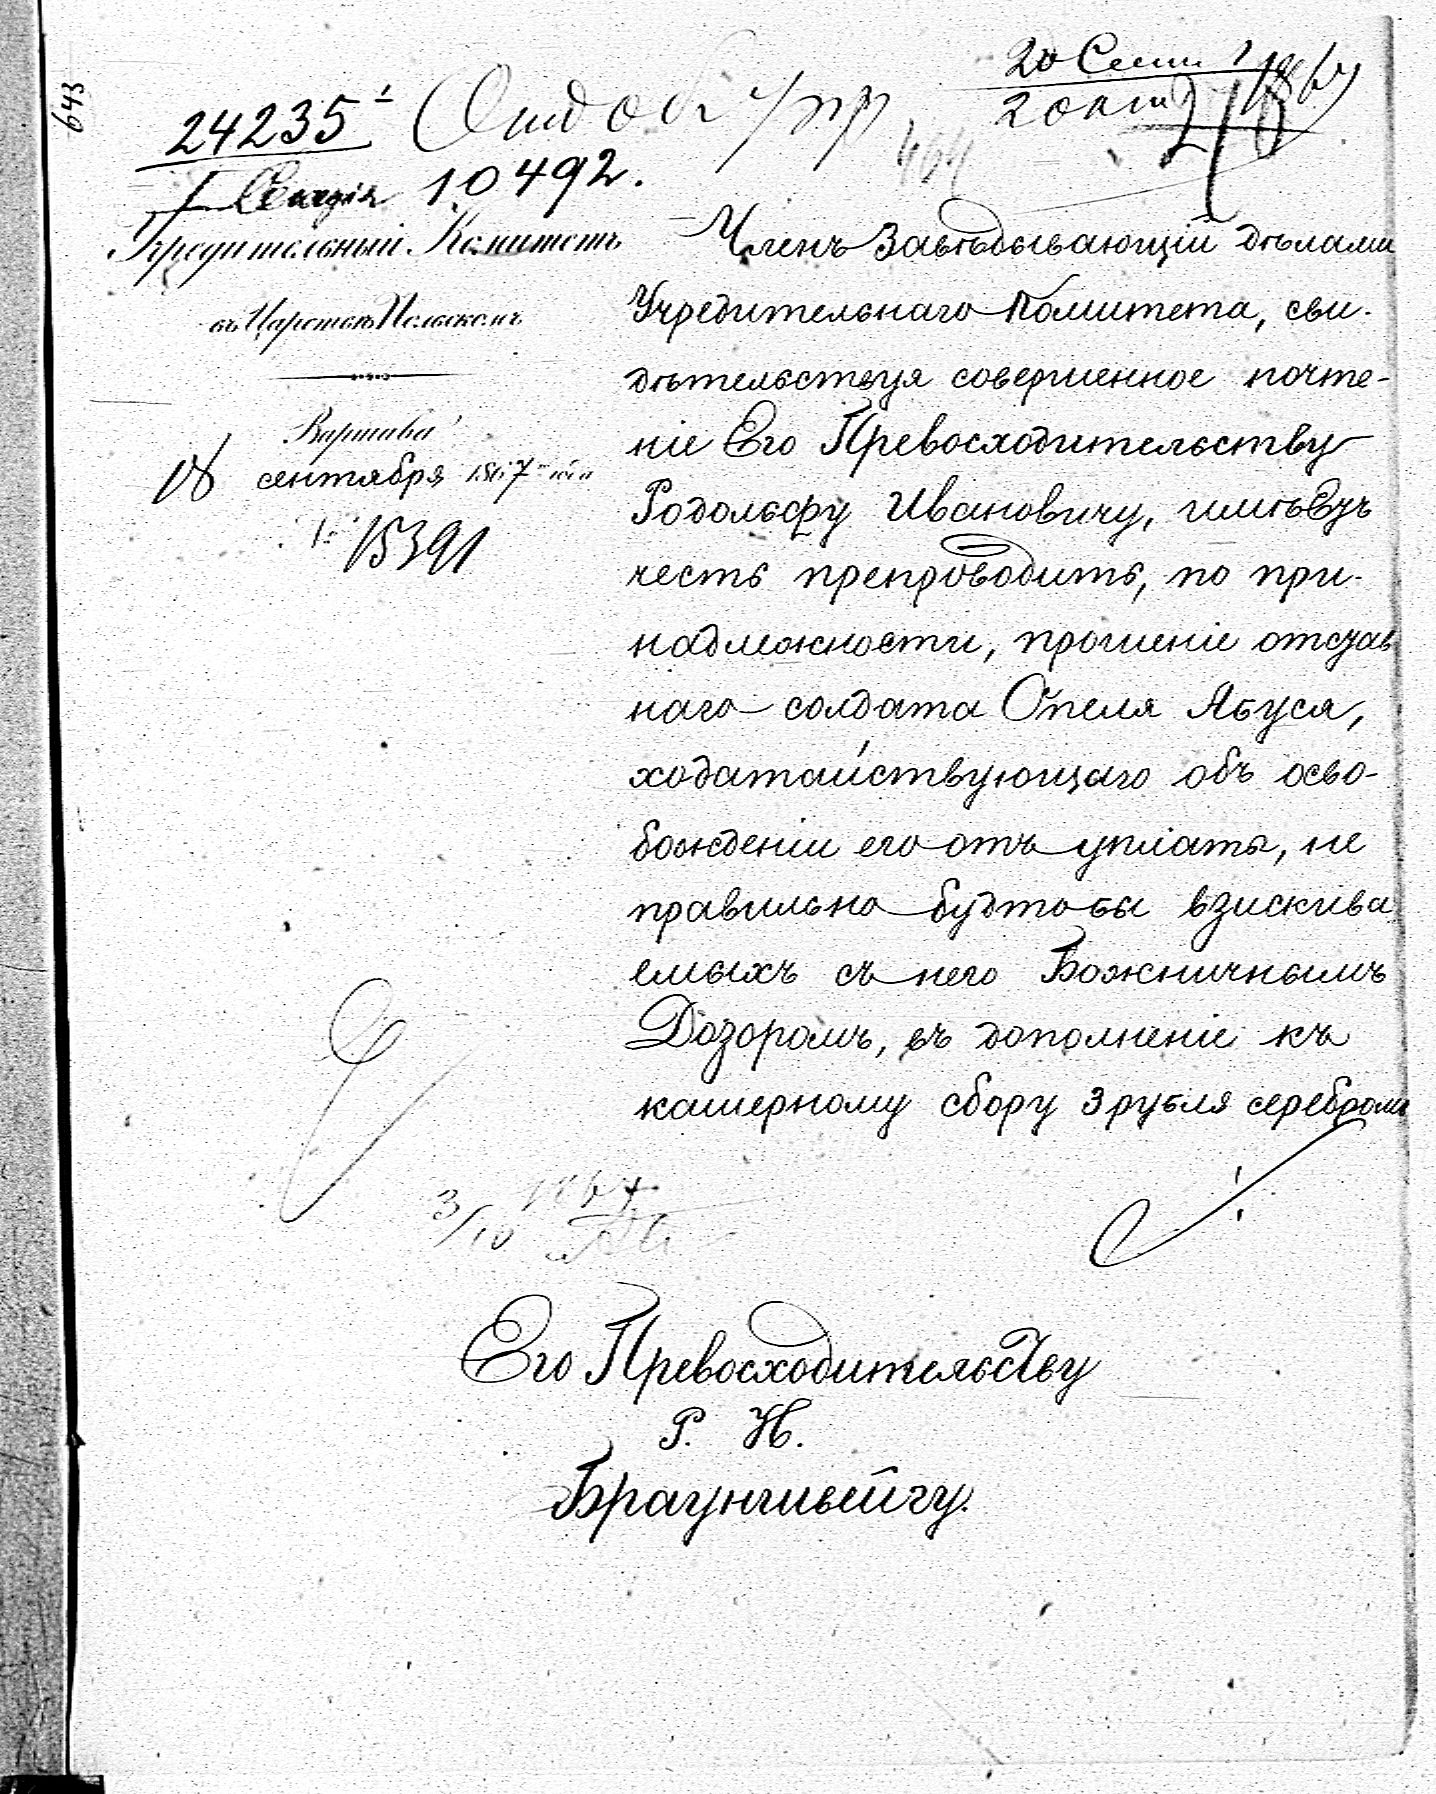 643
20 Сент. 1867
24235
2 Окт
I Секція 10492.
Учредительный Комитетъ
въ Царствѣ Польскомъ
Варшава
18 сентября 1867 года
№ 15391
Членъ Завѣдывающій дѣлами
Учредительнаго Комитета, сви-
дѣтельствуя совершенное почте-
ніе Его Превосходительству
Родольфу Ивановичу, имѣетъ
честь препроводить, по при-
надлежности, прошеніе отстав
наго солдата Опеля Ябуся,
ходатайствующаго объ осво-
божденіи его отъ уплаты, не
правильно будтобы взискива
емыхъ съ него Божничнымъ
Дозоромъ, въ дополненіе къ
кашерному сбору 3 рубля серебромъ
3/10 1867
Его Превосходительству
Р. И.
Брауншвейгу.